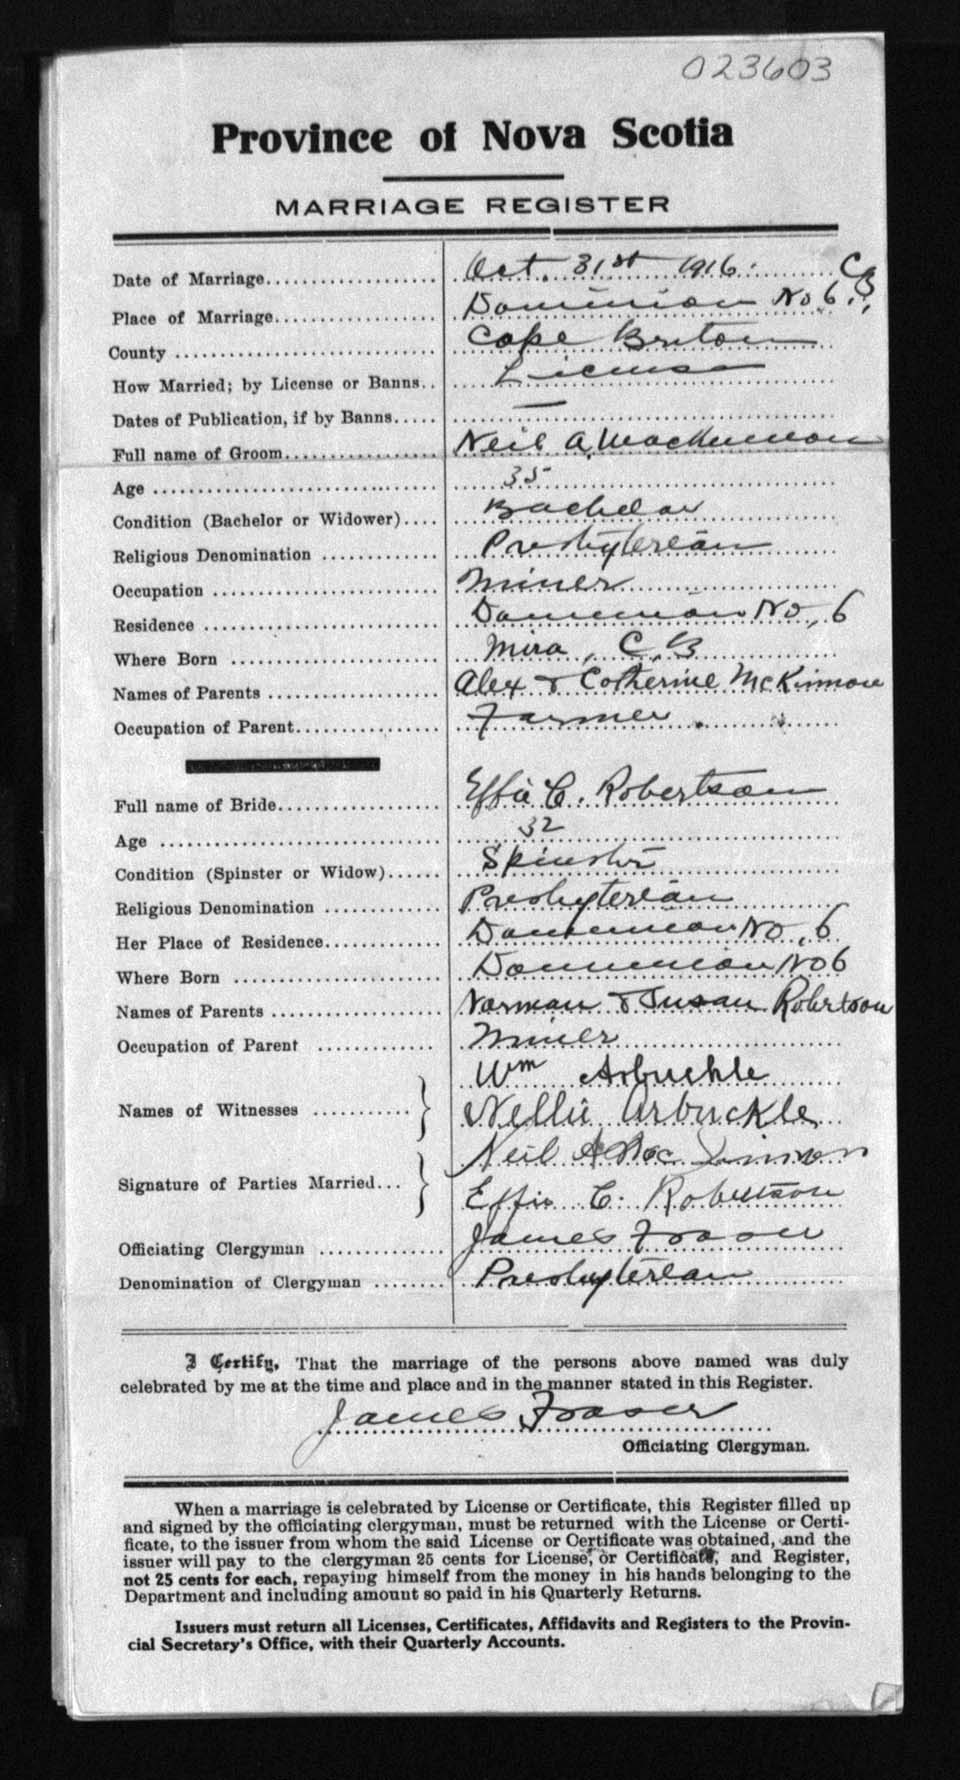 023603
Province of Nova Scotia
MARRIAGE REGISTER
Date of Marriage Oct. 31st 1916.
Place of Marriage Dominion No 6, C.B.
County Cape Breton
How Married; by License or Banns License
Dates of Publication, if by Banns —
Full name of Groom Neil A. MacKinnon
Age 35
Condition (Bachelor or Widower) Bachelor
Religious Denomination Presbyterian
Occupation Miner
Residence Dominion No, 6
Where Born Mira, C, B
Names of Parents Alex & Catherine McKinnon
Occupation of Parent Farmer
Full name of Bride Effie C. Robertson
Age 32
Condition (Spinster or Widow) Spinster
Religious Denomination Presbyterian
Her Place of Residence Dominion No, 6
Where Born Dominion No 6
Names of Parents Norman & Susan Robertson
Occupation of Parent Miner
Wm Arbuckle
Names of Witnesses
Nellie Arbuckle
Neil A MacKinnon
Signature of Parties Married
Effie C. Robertson
Officiating Clergyman James Fraser
Denomination of Clergyman Presbyterian
I Certify, That the marriage of the persons above named was duly
celebrated by me at the time and place and in the manner stated in this Register.
James Fraser
Officiating Clergyman.
When a marriage is celebrated by License or Certificate, this Register filled up
and signed by the officiating clergyman, must be returned with the License or Certi-
ficate, to the issuer from whom the said License or Certificate was obtained, and the
issuer will pay to the clergyman 25 cents for License, or Certificate, and Register,
not 25 cents for each, repaying himself from the money in his hands belonging to the
Department and including amount so paid in his Quarterly Returns.
Issuers must return all Licenses, Certificates, Affidavits and Registers to the Provin-
cial Secretary's Office, with their Quarterly Accounts.